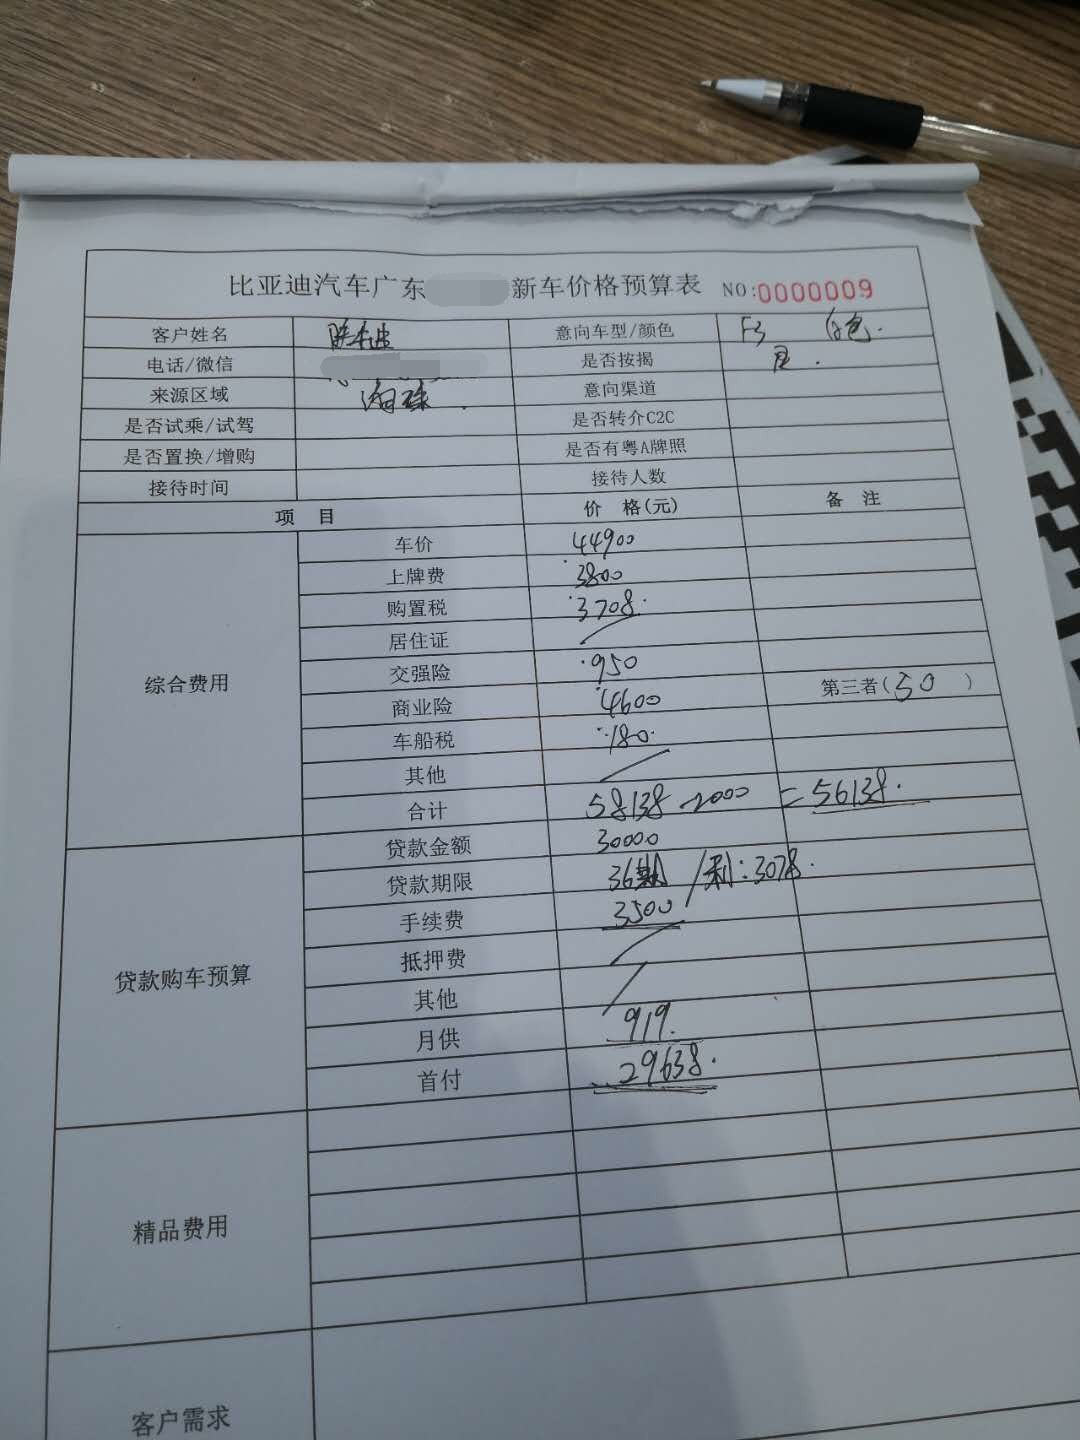 比亚迪汽车广东 新车价格预算表 NO:0000009
客户姓名 意向车型/颜色 F3 白色.
电话/微信 是否按揭 是.
来源区域 海珠. 意向渠道
是否试乘/试驾 是否转介C2C
是否置换/增购 是否有粤A牌照
接待时间 接待人数
项 目 价 格(元) 备 注
综合费用
车价 44900
上牌费 3800
购置税 3708.
居住证 /
交强险 950
商业险 4600 第三者(50)
车船税 180.
其他 /
合计 58138-2000 =56138.
贷款购车预算
贷款金额 30000
贷款期限 36期 /利:3078.
手续费 3500
抵押费 /
其他 /
月供 919.
首付 29638.
精品费用
客户需求